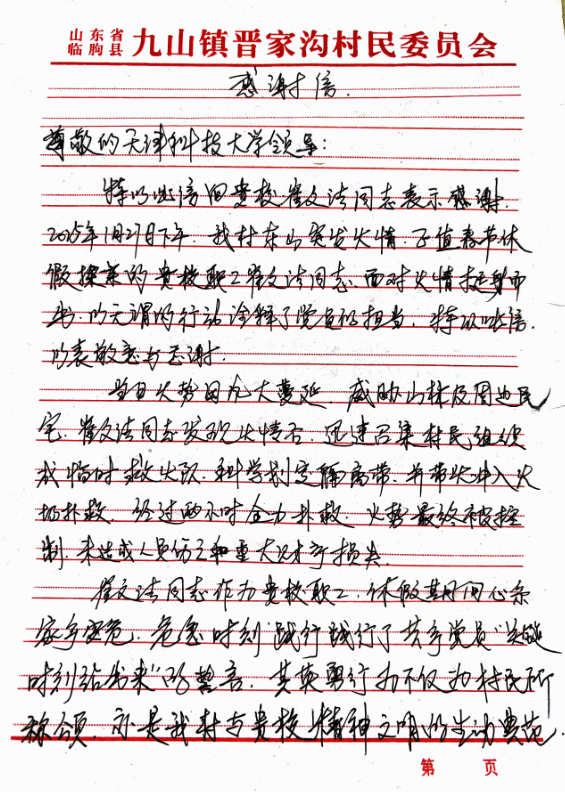 山东省临朐县 九山镇晋家沟村民委员会
感谢信.
尊敬的天津科技大学领导:
特以此信向贵校崔文法同志表示感谢.
2025年1月21日下午.我村东山突发火情.正值春节休
假探亲的贵校职工崔文法同志.面对火情挺身而
出.以无谓的行动诠释了党员的担当.特以此信.
以表敬意与感谢.
当日火势因风大蔓延.威胁山林及周边民
宅.崔文法同志发现火情后.迅速召集村民组织
成临时救火队.科学划定隔离带.并带头冲入火
场扑救.经过两小时全力扑救.火势最终被控
制.未造成人员伤亡和重大财产损失.
崔文法同志作为贵校职工.休假期间心系
家乡安危.危急时刻"践行践行了共产党员"关键
时刻站出来"的誓言.其英勇行为不仅为村民所
称颂.亦是我村与贵校精神文明的生动典范.
第 页